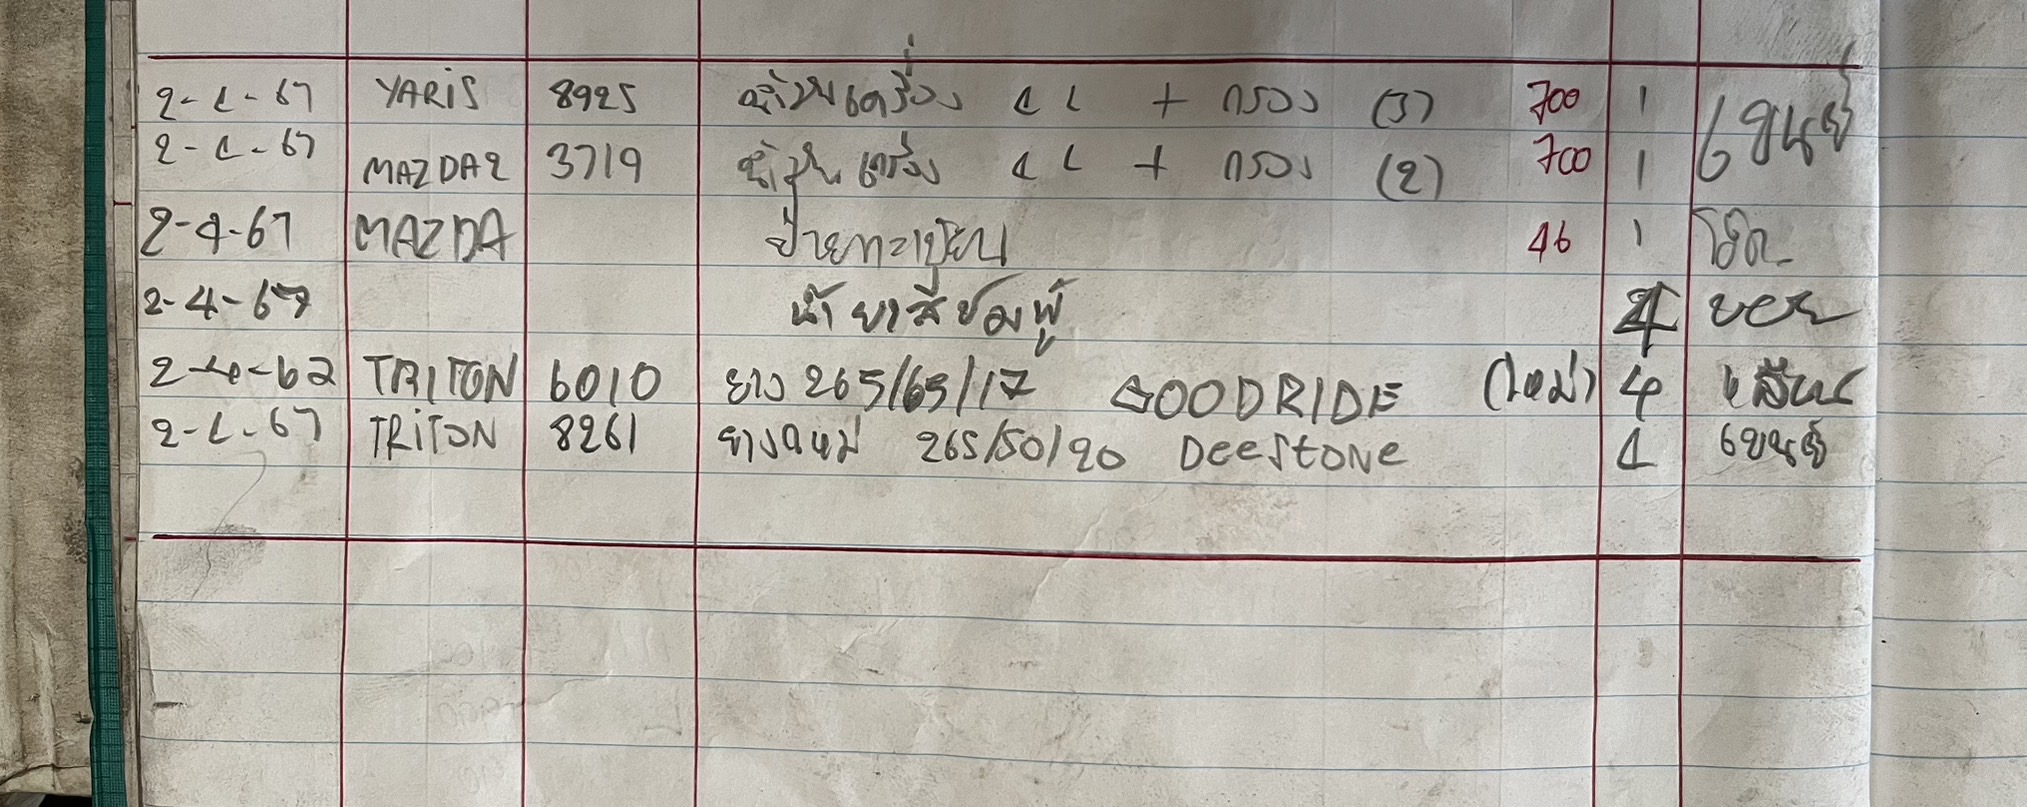 2-4-67 YARIS 8925 น้ำมันเครื่อง 4 L + กรอง (3) 700 1
2-4-67 MAZDA2 3719 น้ำมันเครื่อง 4 L + กรอง (2) 700 1
2-4-67 MAZDA ป้ายทะเบียน 46 1
2-4-67 น้ำยาสีชมพู 4
2-4-67 TRITON 6010 ยาง 265/65/17 GOODRIDE (ใหม่) 4
2-4-67 TRITON 8261 ยางใหม่ 265/50/20 DeeStone 4